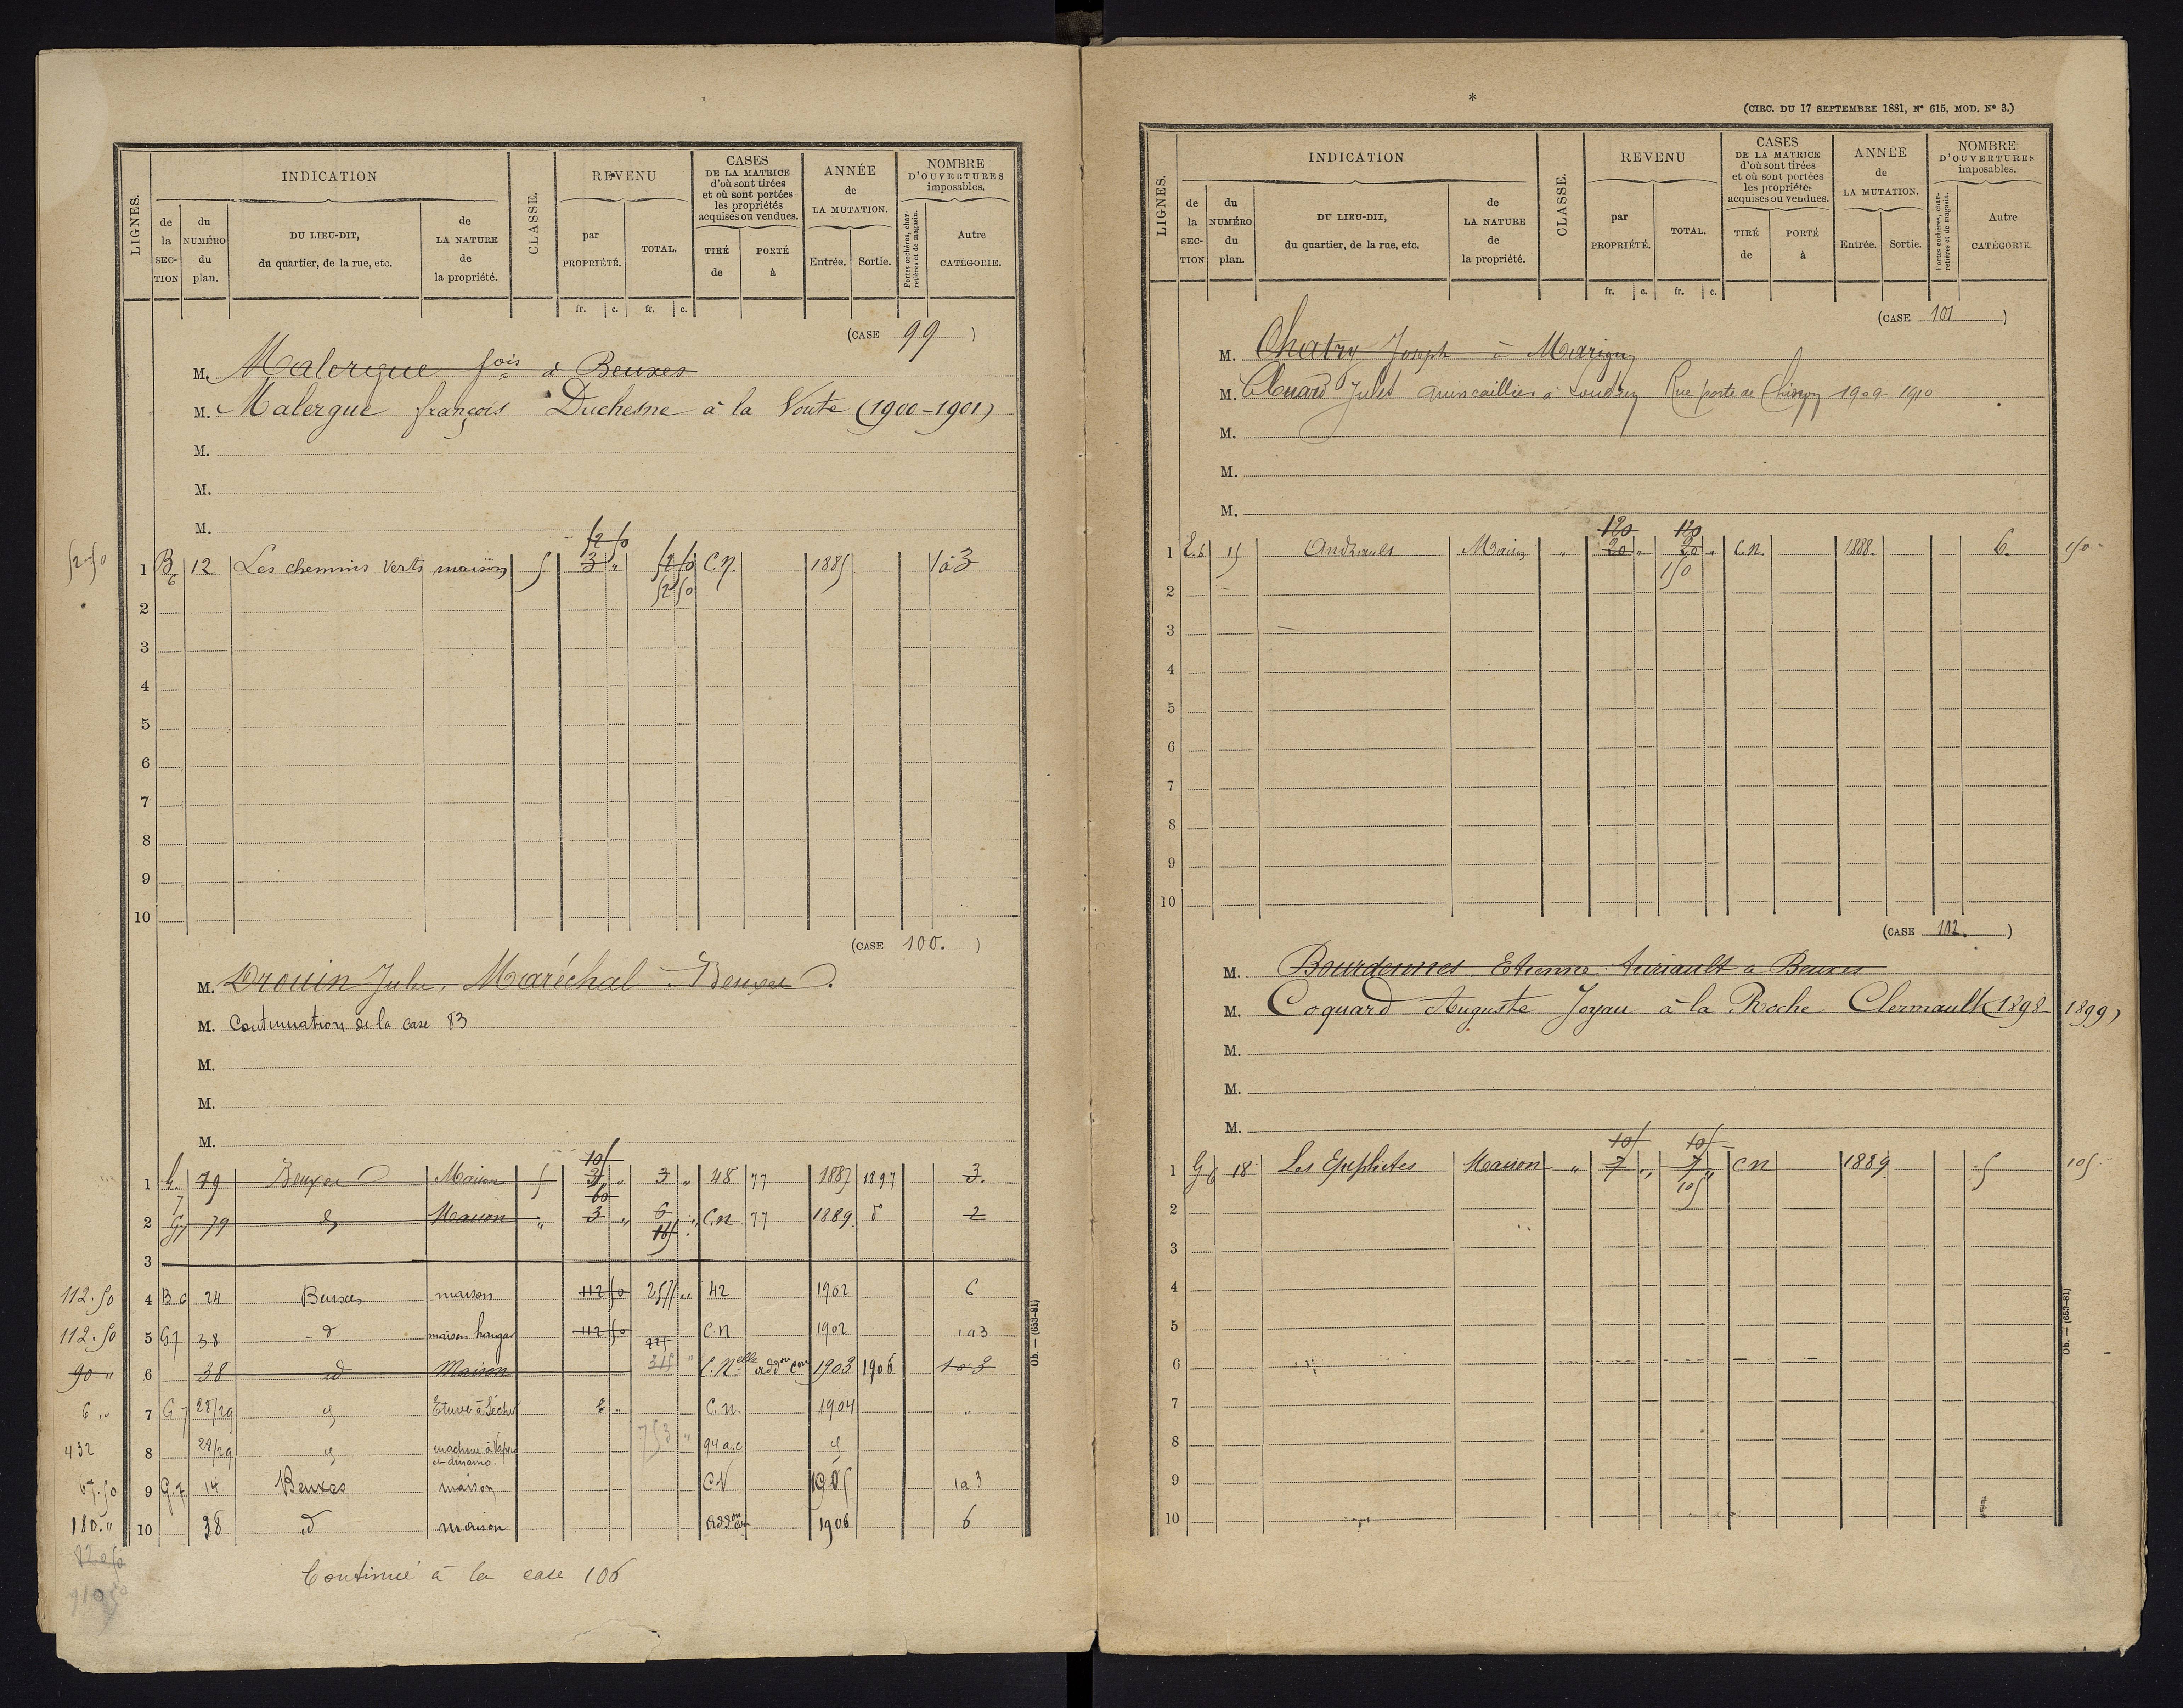 LIGNES.
INDICATION
de la SECTION
du NUMÉRO du plan.
DU LIEU-DIT, du quartier, de la rue, etc.
de LA NATURE de la propriété.
CLASSE.
REVENU
par PROPRIÉTÉ.
TOTAL.
CASES DE LA MATRICE d'où sont tirées et où sont portées les propriétés acquises ou vendues.
TIRÉ de
PORTÉ à
ANNÉE de LA MUTATION.
Entrée.
Sortie.
NOMBRE D'OUVERTURES imposables.
Portes cochères, charretières et de magasin.
Autre CATÉGORIE.
fr. c. fr. c.
(CASE 99 )
M. Malergue fois à Beuxes
M. Malergue françois Duchesne à la Voute (1900-1901)
M.
M.
M.
52 50
52.50 1 B6 12 Les chemins verts maison 5 3 " 52 50 C.n. 1885 1 à 3
52 50
2
3
4
5
6
7
8
9
10
(CASE 100. )
M. Drouin Jules, Maréchal Beuxes
M. Continuation de la case 83
M.
M.
M.
105
1 G.7 79 Beuxes Maison 5 3 " 3 " 48 77 1887 1897 3.
60
2 G7 79 d Maison " 3 " 6 " C.n 77 1889. d 2
165
3
112.50 4 B 6 24 Beuxes maison 112 50 257 " 42 1902 6
112.50 5 G7 38 d maison hangar 112 50 225 C.n 1902 1 a 3
90 " 6 38 d Maison 315 " C.Nelle addon con 1903 1906 1 a 3
6 " 7 G 7 28/29 d Etuve à sécher 6 " C.n. 1904 "
432 8 28/29 d machine à Vapeur et dinamo. 753 " 94 a.c d
67.50 9 G.7 14 Beuxes maison C.N 1905 1 a 3
180. " 10 38 d maison addon con 1906 6
910 50
Continué à la case 106
Ob. — (653-81)
*
(CIRC. DU 17 SEPTEMBRE 1881, N° 615, MOD. N° 3.)
LIGNES.
INDICATION
de la SECTION
du NUMÉRO du plan.
DU LIEU-DIT, du quartier, de la rue, etc.
de LA NATURE de la propriété.
CLASSE.
REVENU
par PROPRIÉTÉ.
TOTAL.
CASES DE LA MATRICE d'où sont tirées et où sont portées les propriétés acquises ou vendues.
TIRÉ de
PORTÉ à
ANNÉE de LA MUTATION.
Entrée.
Sortie.
NOMBRE D'OUVERTURES imposables.
Portes cochères, charretières et de magasin.
Autre CATÉGORIE.
fr. c. fr. c.
(CASE 101 )
M. Chatry Joseph à Marigny
M. Clouard Jules quincaillier à Loudun Rue porte de Chinon 1909 1910
M.
M.
M.
120 120
1 E.6 15 Andraults Maison " 20 " 20 " C.n. 1888. 6. 150
150
2
3
4
5
6
7
8
9
10
(CASE 102. )
M. Bourdennes Etienne Auriault a Beuxes
M. Coquard Auguste Joyau à la Roche Clermault (1898-1899)
M.
M.
M.
105 105
1 G6 18 Les Epeplietes Maison " 7 " 7 " C n 1889 5 105
105
2
3
4
5
6
7
8
9
10
Ob. — (653-81)